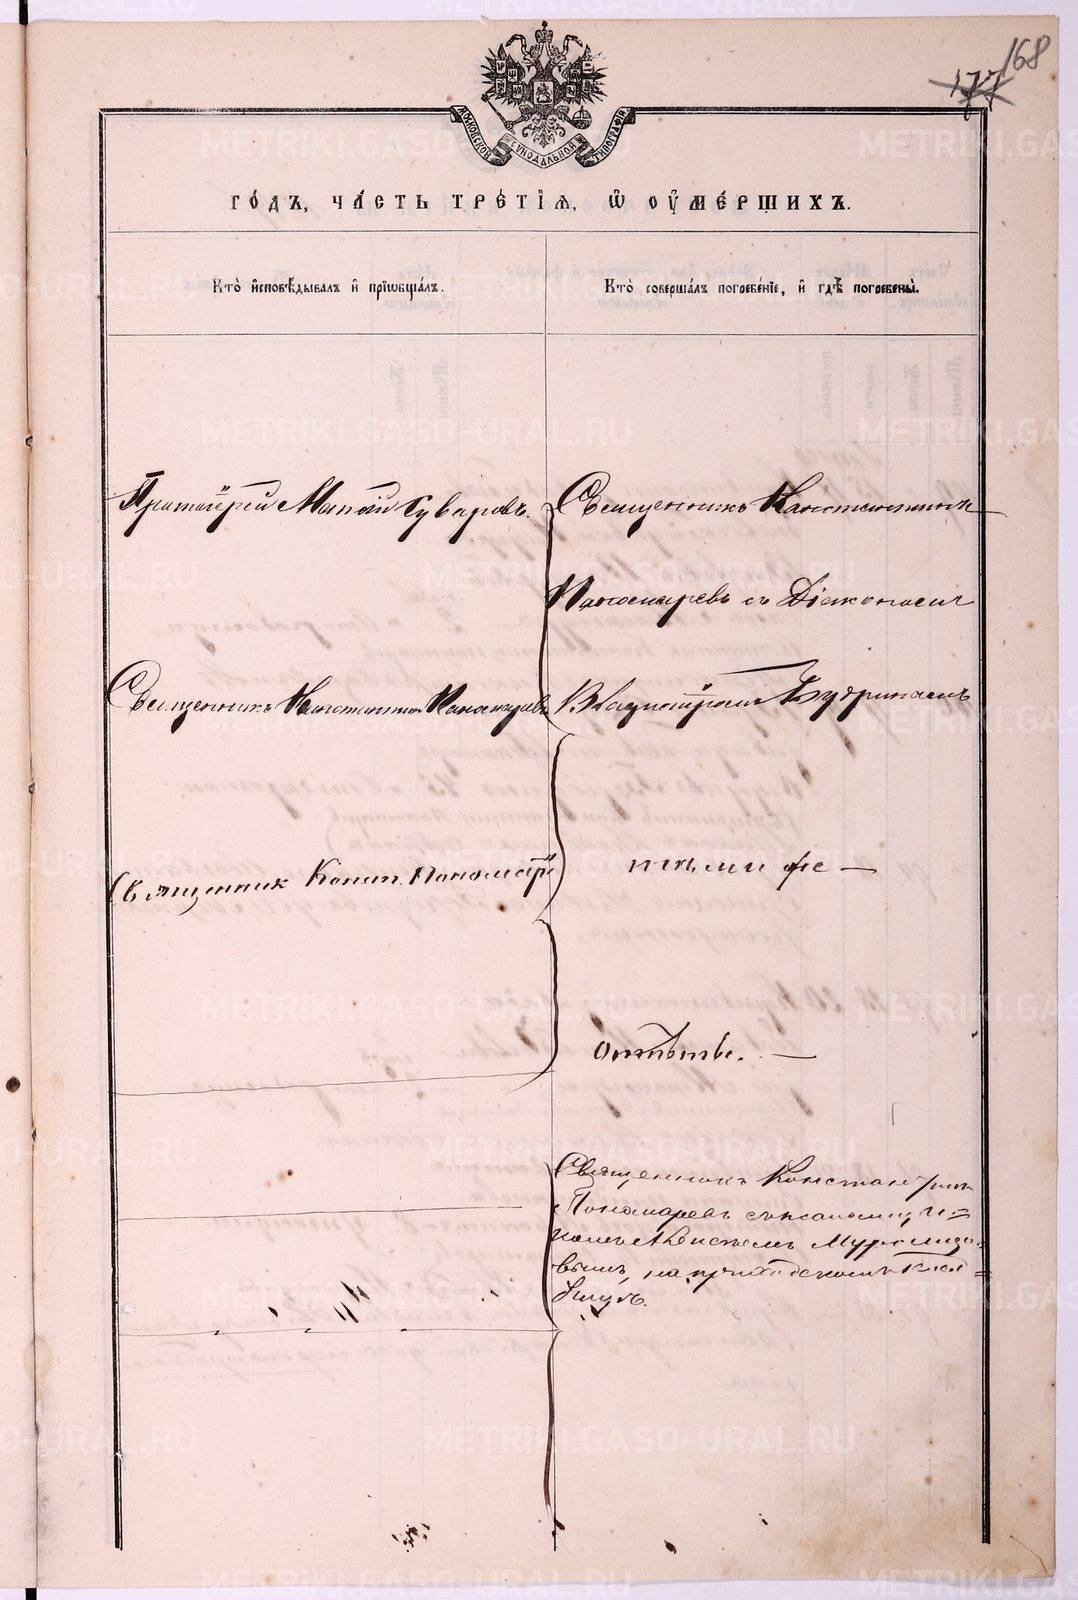 168
177
МОСКОВСКОЙ СѴНОДАЛЬНОЙ ТИПОГРАФІИ
ГО́ДЪ, ЧА́СТЬ ТРЕ́ТІѦ, Ѡ҆ ОУ҆МЕ́РШИХЪ.
Кто̀ и҆сповѣ́дывалъ и҆ прїѡбща́лъ.
Кто̀ соверша́лъ погребе́нїе, и҆ гдѣ̀ погребены̀.
Протоіерей Матѳій Суваровъ.
Священникъ Константинъ
Пономаревъ съ Діакономъ
Священникъ Константинъ Пономаревъ
Владиміромъ Будринымъ
Священник Конст. Пономарев
тѣми же —
Отпѣтъ. —
Священникъ Константинъ
Пономаревъ съ псаломщи=
комъ Муромцо=
вымъ, на приходскомъ клад=
бищѣ.
METRIKI.GASO-URAL.RU